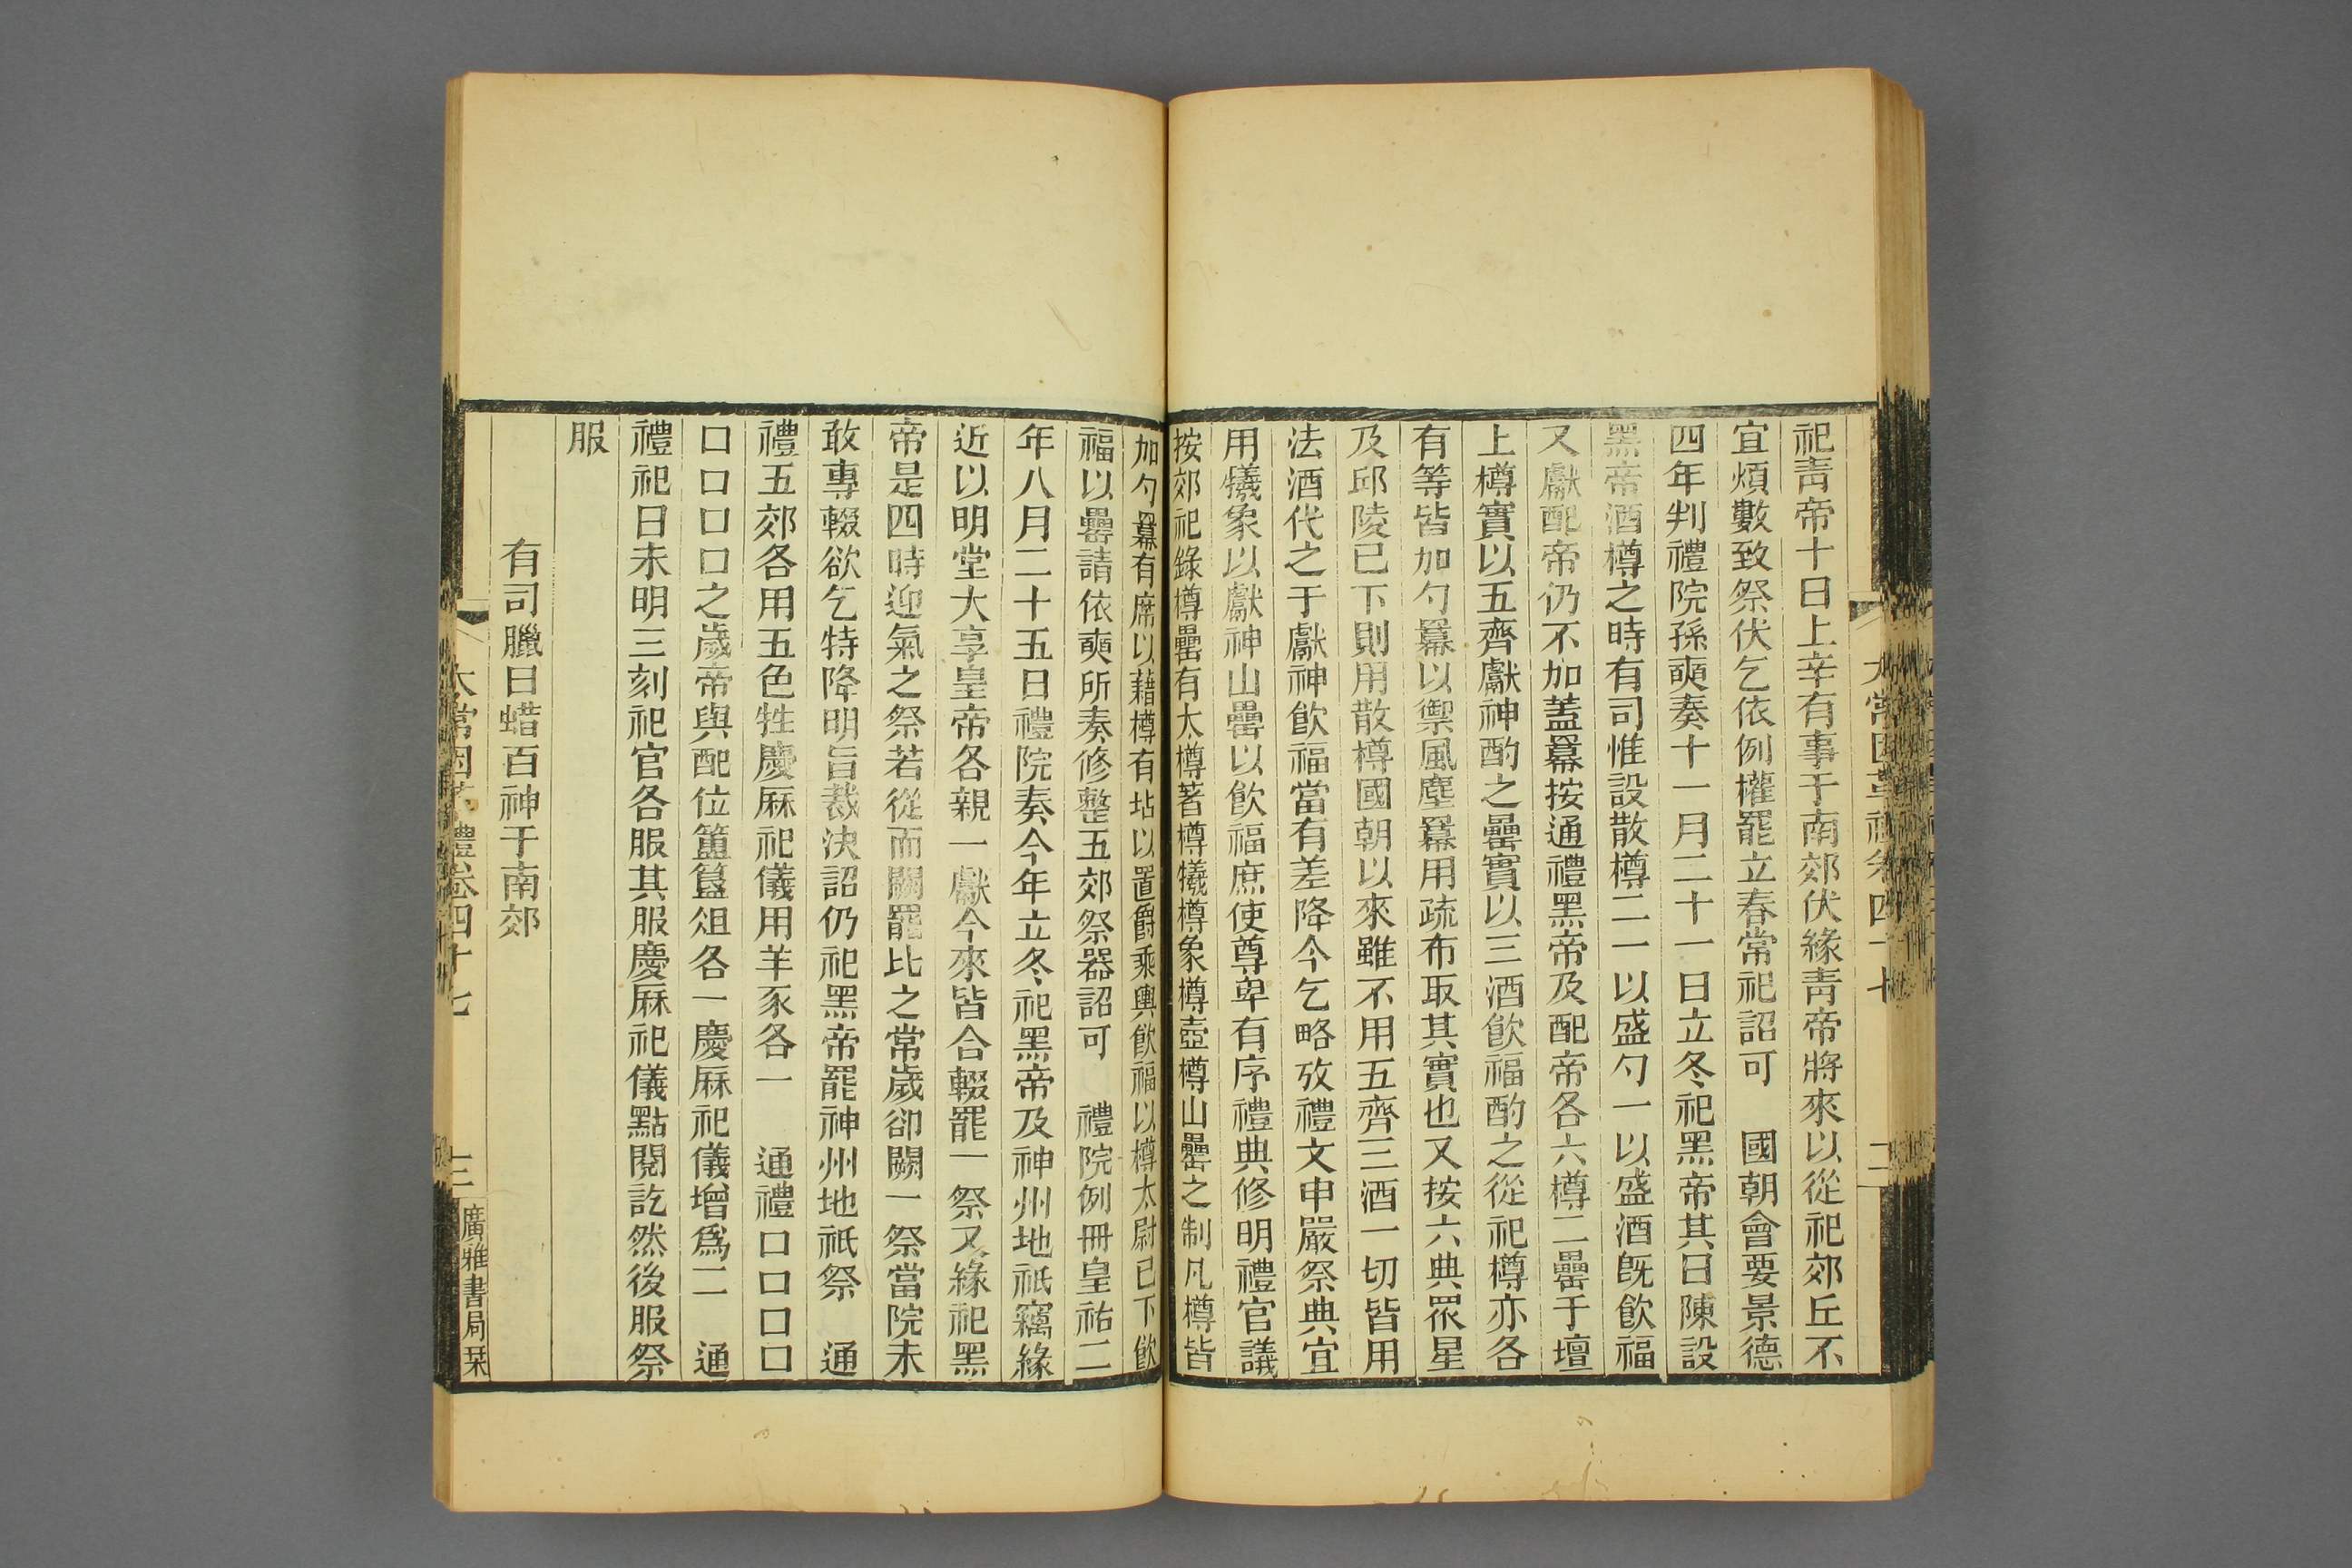 祀靑帝十日上辛有事于南郊伏緣靑帝將來以從祀郊丘不
宜煩數致祭伏乞依例權罷立春常祀詔可　國朝會要景德
四年判禮院孫奭奏十一月二十一日立冬祀黑帝其日陳設
黑帝酒樽之時有司惟設散樽二一以盛勺一以盛酒旣飮福
又獻配帝仍不加蓋羃按通禮黑帝及配帝各六樽二罍于壇
上樽實以五齊獻神酌之罍實以三酒飮福酌之從祀樽亦各
有等皆加勺羃以禦風塵羃用疏布取其實也又按六典眾星
及邱陵已下則用散樽國朝以來雖不用五齊三酒一切皆用
法酒代之于獻神飮福當有差降今乞略攷禮文申嚴祭典宜
用犧象以獻神山罍以飮福庶使尊卑有序禮典修明禮官議
按郊祀錄樽罍有大樽著樽犧樽象樽壺樽山罍之制凡樽皆
加勺羃有席以藉樽有坫以置爵乘輿飮福以樽太尉已下飮
福以罍請依奭所奏修整五郊祭器詔可　禮院例冊皇祐二
年八月二十五日禮院奏今年立冬祀黑帝及神州地祇竊緣
近以明堂大享皇帝各親一獻今來皆合輟罷一祭又緣祀黑
帝是四時迎氣之祭若從而闕罷比之常歲卻闕一祭當院未
敢專輟欲乞特降明旨裁決詔仍祀黑帝罷神州地祇祭　通
禮五郊各用五色牲慶厤祀儀用羊豕各一　通禮口口口口
口口口口之歲帝與配位簠簋俎各一慶厤祀儀增爲二　通
禮祀日未明三刻祀官各服其服慶厤祀儀點閱訖然後服祭
服
有司臘日蜡百神于南郊
禮卷四十七
三
廣雅書局栞